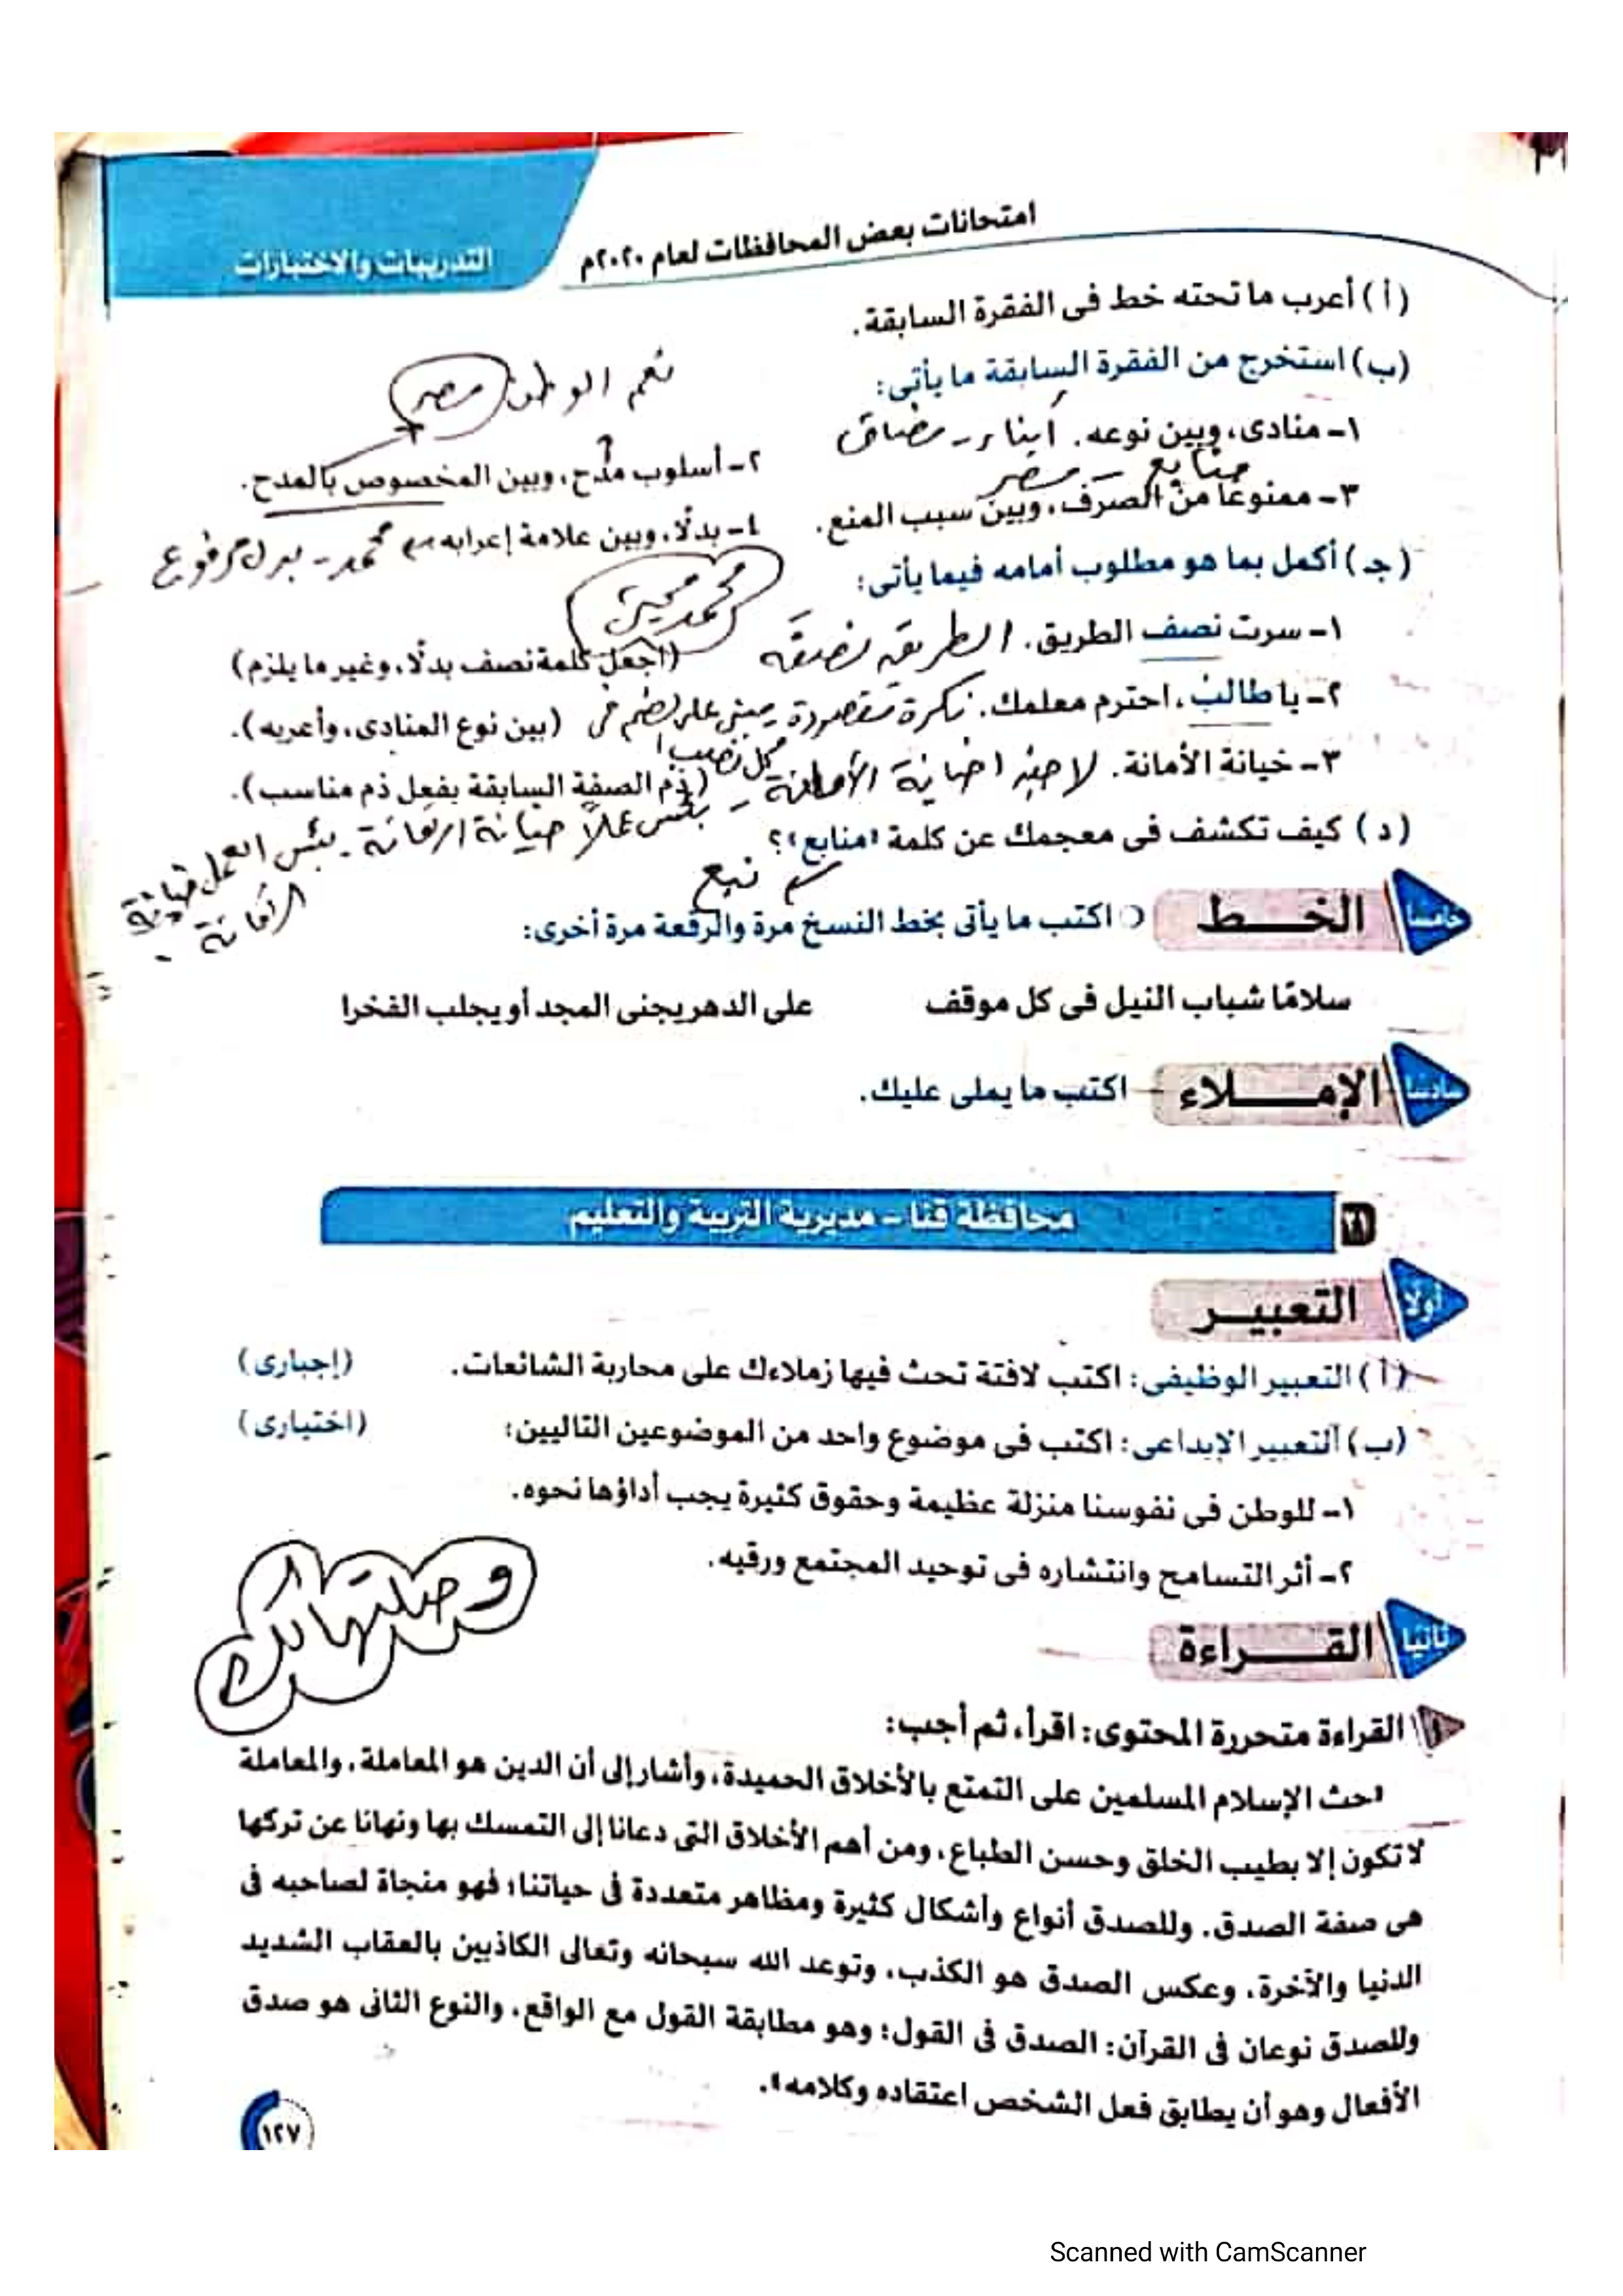 امتحانات بعض المحافظات لعام ٢٠٢٠م
التدريبات والاختبارات
(أ) أعرب ما تحته خط فى الفقرة السابقة.
(ب) استخرج من الفقرة السابقة ما يأتى:
نعم الوطن مصر
١- منادى، وبين نوعه. أبناء - مضاف
٢- أسلوب مدح، وبين المخصوص بالمدح.
منابع - مصر
٣- ممنوعًا من الصرف، وبين سبب المنع.
٤- بدلًا، وبين علامة إعرابه محمد - بدل مرفوع
(جـ) أكمل بما هو مطلوب أمامه فيما يأتى:
محمد
١- سرت نصف الطريق. الطريق نصفه (اجعل كلمة نصف بدلًا، وغير ما يلزم)
٢- يا طالبُ، احترم معلمك. نكرة مقصودة مبنى على الضم فى (بين نوع المنادى، وأعربه).
محل نصب
٣- خيانة الأمانة. لا حبذا خيانة الأمانة (ذم الصفة السابقة بفعل ذم مناسب).
- بئس عملًا خيانة الأمانة - بئس العمل خيانة
الأمانة
(د) كيف تكشف فى معجمك عن كلمة «منابع»؟
نبع
خامسا الخـــط اكتب ما يأتى بخط النسخ مرة والرقعة مرة أخرى:
سلامًا شباب النيل فى كل موقف على الدهر يجنى المجد أو يجلب الفخرا
سادسا الإمـــلاء اكتب ما يملى عليك.
٢١ محافظة قنا - مديرية التربية والتعليم
أولا التعبيـر
(أ) التعبير الوظيفى: اكتب لافتة تحث فيها زملاءك على محاربة الشائعات. (إجبارى)
(ب) التعبير الإبداعى: اكتب فى موضوع واحد من الموضوعين التاليين: (اختيارى)
١- للوطن فى نفوسنا منزلة عظيمة وحقوق كثيرة يجب أداؤها نحوه.
٢- أثر التسامح وانتشاره فى توحيد المجتمع ورقيه.
وصلتهالك
ثانيا القـــراءة
١ القراءة متحررة المحتوى: اقرأ، ثم أجب:
«حث الإسلام المسلمين على التمتع بالأخلاق الحميدة، وأشار إلى أن الدين هو المعاملة، والمعاملة
لا تكون إلا بطيب الخلق وحسن الطباع، ومن أهم الأخلاق التى دعانا إلى التمسك بها ونهانا عن تركها
هى صفة الصدق. وللصدق أنواع وأشكال كثيرة ومظاهر متعددة فى حياتنا؛ فهو منجاة لصاحبه فى
الدنيا والآخرة، وعكس الصدق هو الكذب، وتوعد الله سبحانه وتعالى الكاذبين بالعقاب الشديد
وللصدق نوعان فى القرآن: الصدق فى القول؛ وهو مطابقة القول مع الواقع، والنوع الثانى هو صدق
الأفعال وهو أن يطابق فعل الشخص اعتقاده وكلامه».
١٢٧
Scanned with CamScanner